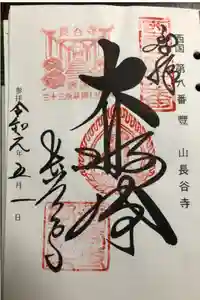 西国 第八番 豊山長谷寺
奉拝
大悲閣
長谷寺
参拝 令和元年五月一日